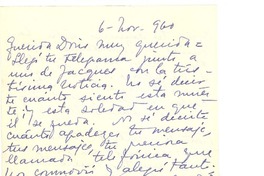 6-Nov-960
Querida Doris muy querida =
Llegó tu telegrama junto a
uno de Jacques con la tris-
tísima noticia. No sé decir
te cuanto siento esta muer-
te y esta soledad en que
él se queda. No sé decirte
cuánto agradezco tu mensaje,
tus mensajes, tu
llamada telefónica que
me conmovió y alegró tanto.